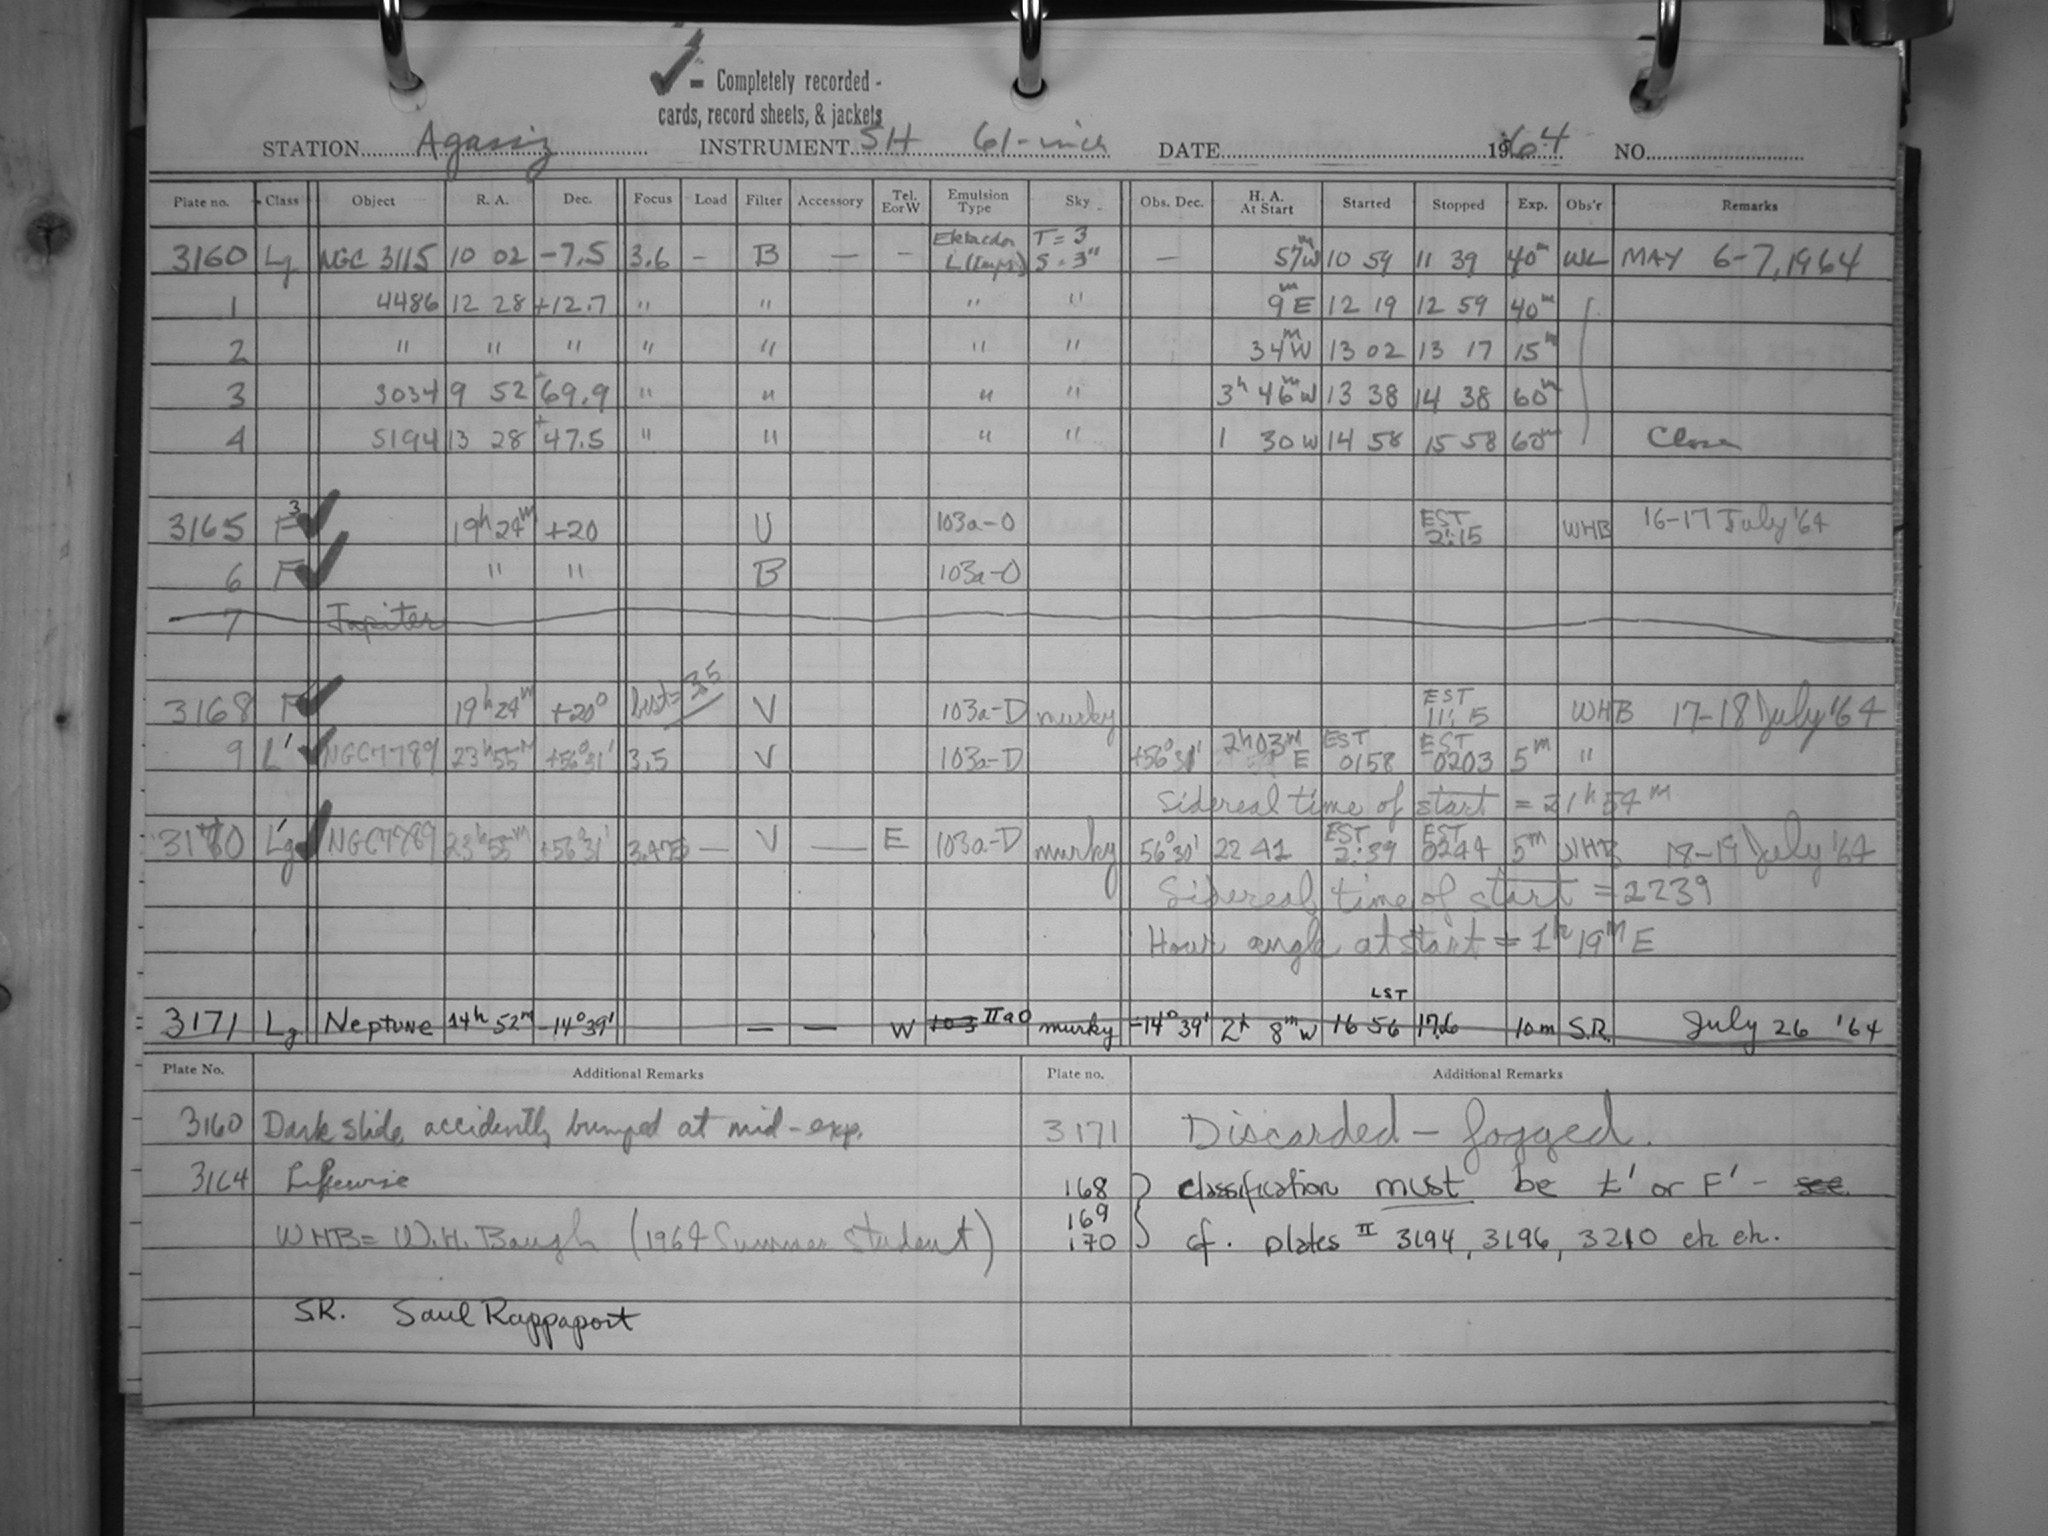 ✓ = Completely recorded -
cards, record sheets, & jackets
STATION Agassiz INSTRUMENT SH 61-inch DATE 1964 NO.
Plate no. Class Object R. A. Dec. Focus Load Filter Accessory Tel. E or W Emulsion Type Sky Obs. Dec. H. A. At Start Started Stopped Exp. Obs'r Remarks
3160 Lg NGC 3115 10 02 -7.5 3.6 - B — - L T = 3 S = 3" — 57m W 10 59 11 39 40m WL MAY 6-7, 1964
1 4486 12 28 +12.7 " " " " 9m E 12 19 12 59 40m
2 " " " " " " " 34m W 13 02 13 17 15m
3 3034 9 52 +69.9 " " " " 3h 46m W 13 38 14 38 60m
4 5194 13 28 +47.5 " " " " 1 30 W 14 58 15 58 60m Close
3165 F3 ✓ 19h 24m +20 U 103a-O EST 2:15 WHB 16-17 July '64
6 F ✓ " " B 103a-O
7 Jupiter
3168 F ✓ 19h 24m +20° best = 3.5 V 103a-D murky EST 11:15 WHB 17-18 July '64
9 L' ✓ NGC7789 23h 55m +56°31' 3.5 V 103a-D +56°31' 2h03m E EST 0158 EST 0203 5m "
Sidereal time of start = 21h 54m
3170 L'g ✓ NGC7789 23h 55m +56°31' 3.475 — V — E 103a-D murky 56°30' 22 41 EST 2:39 EST 0244 5m WHB 18-19 July '64
Sidereal time of start = 2239
Hour angle at start = 1h 19m E
LST
3171 Lg Neptune 14h 52m -14°39' — — W 103 IIaO murky -14°39' 2h 8m W 16 56 17 6 10m S.R. July 26 '64
Plate No. Additional Remarks Plate no. Additional Remarks
3160 Dark slide accidently bumped at mid-exp.
3164 Likewise
WHB = W.H. Baugh (1964 Summer Student)
S.R. Saul Rappaport
3171 Discarded - fogged.
168 classification must be L' or F' - see
169
170 cf. plates II 3194, 3196, 3210 etc etc.